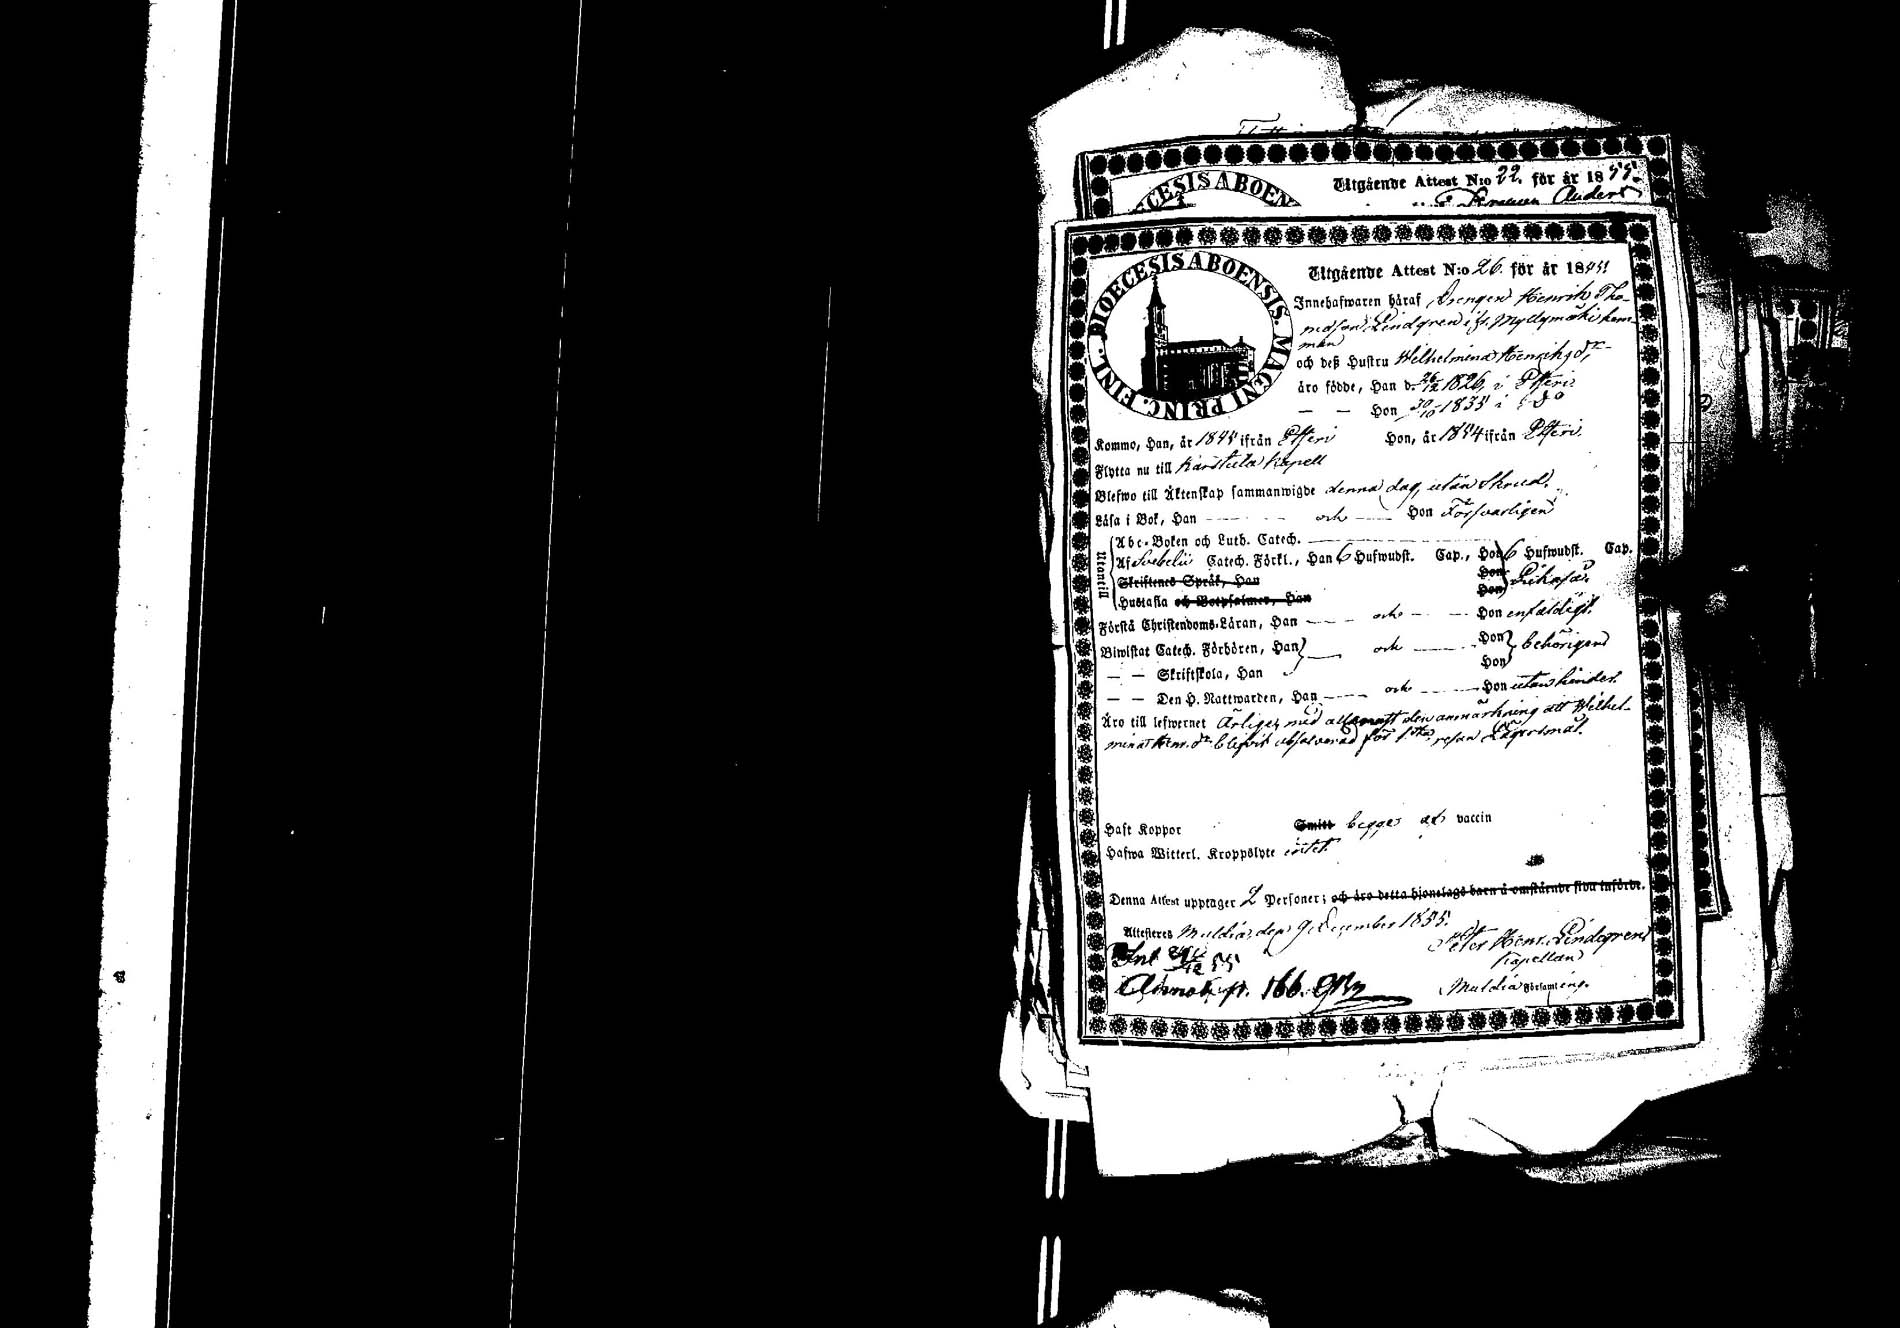 Utgående Attest N:o 22. för år 1855.
Anders
DIOECESIS ABOENSIS. MAGNI PRINC. FINL.
Utgående Attest N:o 26. för år 1855
Innehafwaren häraf Drengen Henrik Tho-
masson Lindgren ifr. Myllymäki hem-
man
och deß Hustru Wilhelmina Henriksdr
äro födde, Han d. 26/12 1826, i Etseri
— — Hon 30/10 1835 i do
Kommo, Han, år 1855 ifrån Etseri Hon, år 1854 ifrån Etseri.
Flytta nu till Karstula Kapell
Blefwo till Äktenskap sammanwigde denna dag, utan Skrud.
Läsa i Bok, Han — och — Hon Försvarligen
Utantill
Abc-Boken och Luth. Catech.
Af Svebelii Catech. Förkl., Han 6 Hufwudst. Cap., Hon 6 Hufwudst. Cap.
Skriftenes Språk, Han Hon
Hustafla och Botpsalmer, Han Hon
Förstå Christendoms-Läran, Han — och — Hon enfaldigt.
Biwistat Catech. Förhören, Han — och — Hon behörigen
— — Skriftskola, Han Hon
— — Den H. Nattwarden, Han — och — Hon utan hinder.
Äro till lefwernet Ärlige, med den anmärkning att Wilhel-
mina Henr.dr blifvit absolverad för 1sta resan Lägersmål.
Haft Koppor Smitt begge af vaccin
Hafwa Witterl. Kroppslyte intet.
Denna Attest upptager 2 Personer; och äro detta hjonelags barn å omstående sida införde.
Attesteres Muldia, den 9 December 1855.
Peter Henr. Lindegren
Kapellan
Muldia Församling.